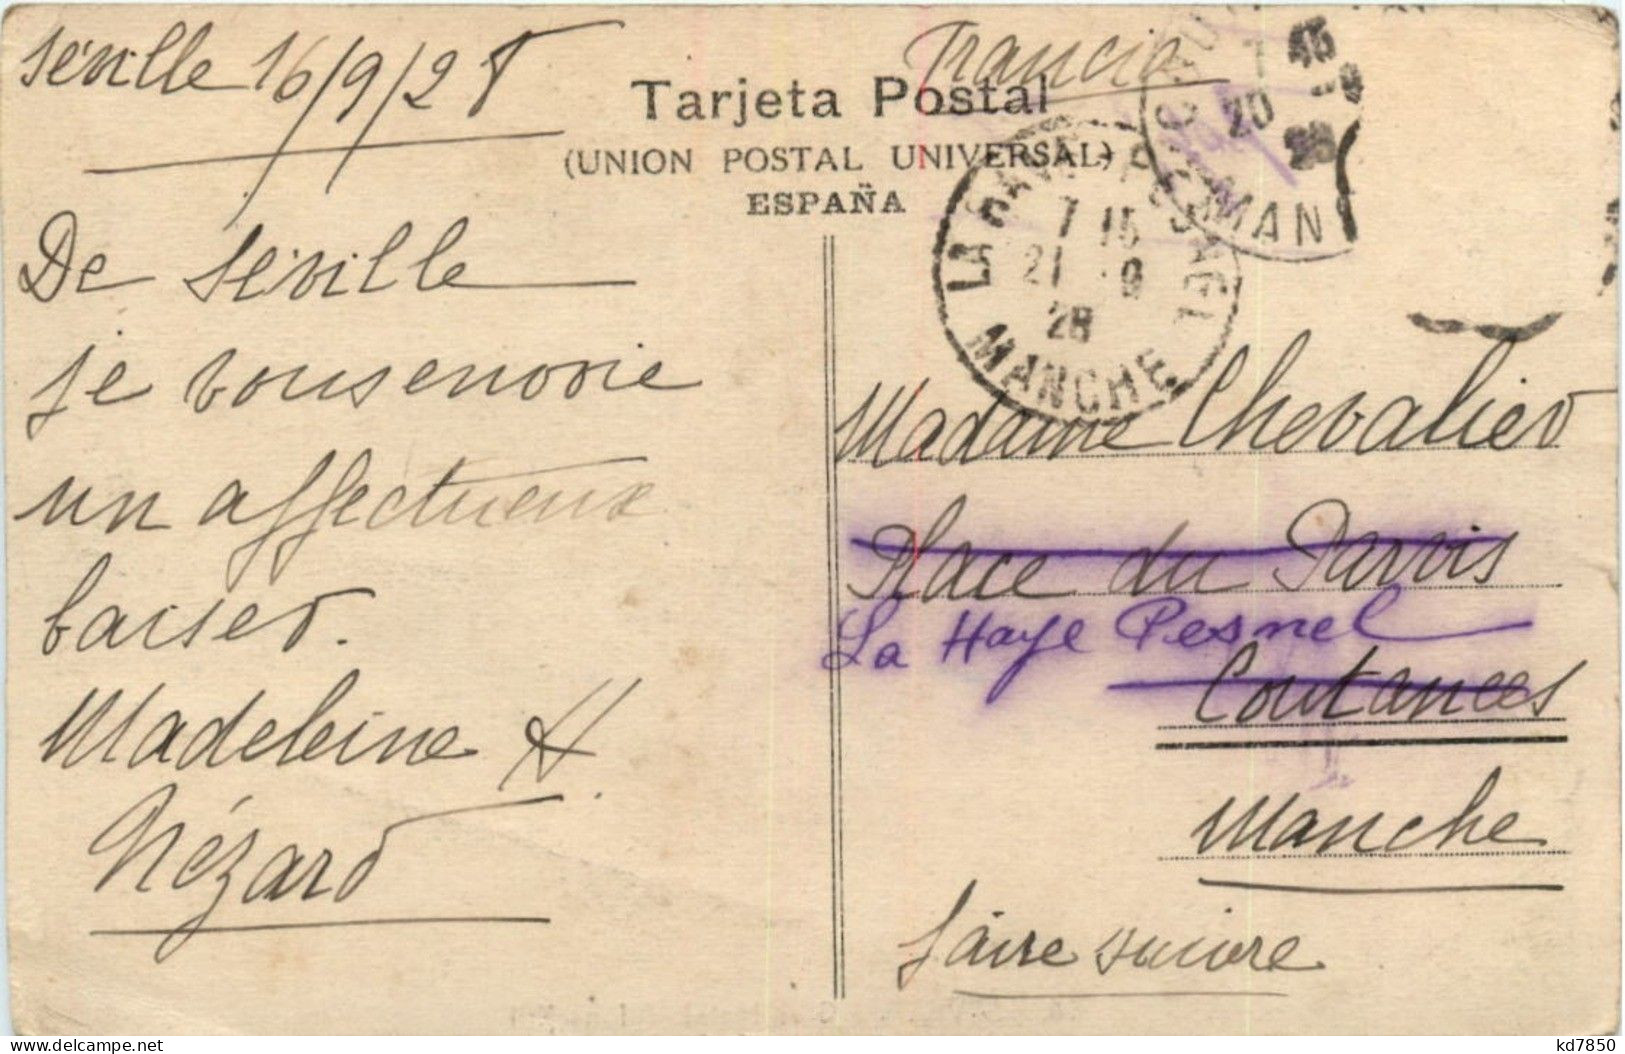 Séville 16/9/28
Francia
Tarjeta Postal
(UNION POSTAL UNIVERSAL)
ESPAÑA
De Séville
je vous envoie
un affectueux
baiser.
Madeleine H.
Hézard
LA HAYE PESNEL
7 15
21 9
28
MANCHE
7 45
20
28
MAN
Madame Chevalier
Place du Parvis
La Haye Pesnel
Coutances
Manche
faire suivre
kd7850